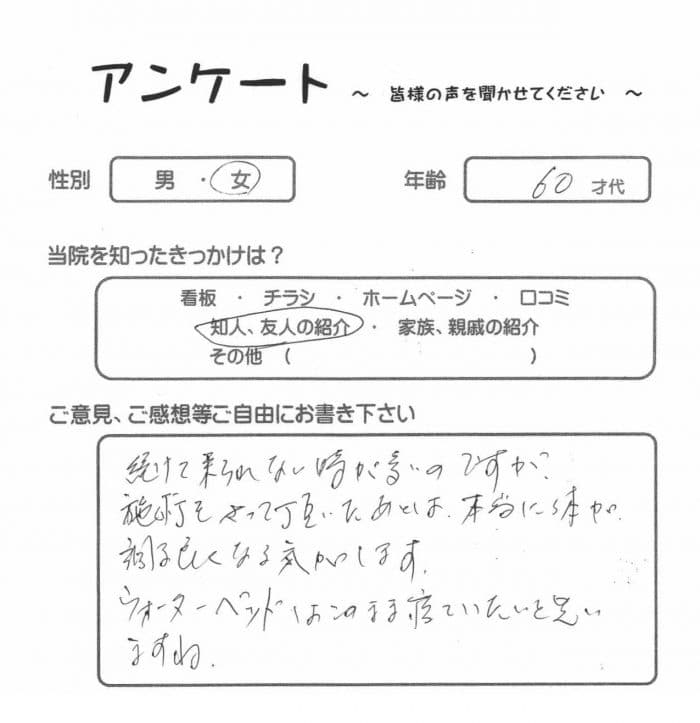 アンケート ～ 皆様の声を聞かせてください ～
性別 男 ・ 女 年齢 60 才代
当院を知ったきっかけは？
看板 ・ チラシ ・ ホームページ ・ 口コミ
知人、友人の紹介 ・ 家族、親戚の紹介
その他 （ ）
ご意見、ご感想等ご自由にお書き下さい
続けて来られない時が多いのですが、
施術をやって頂いたあとは、本当に体が、
調子良くなる気がします。
ウォーターベッドはこのまま寝ていたいと思い
ますね。